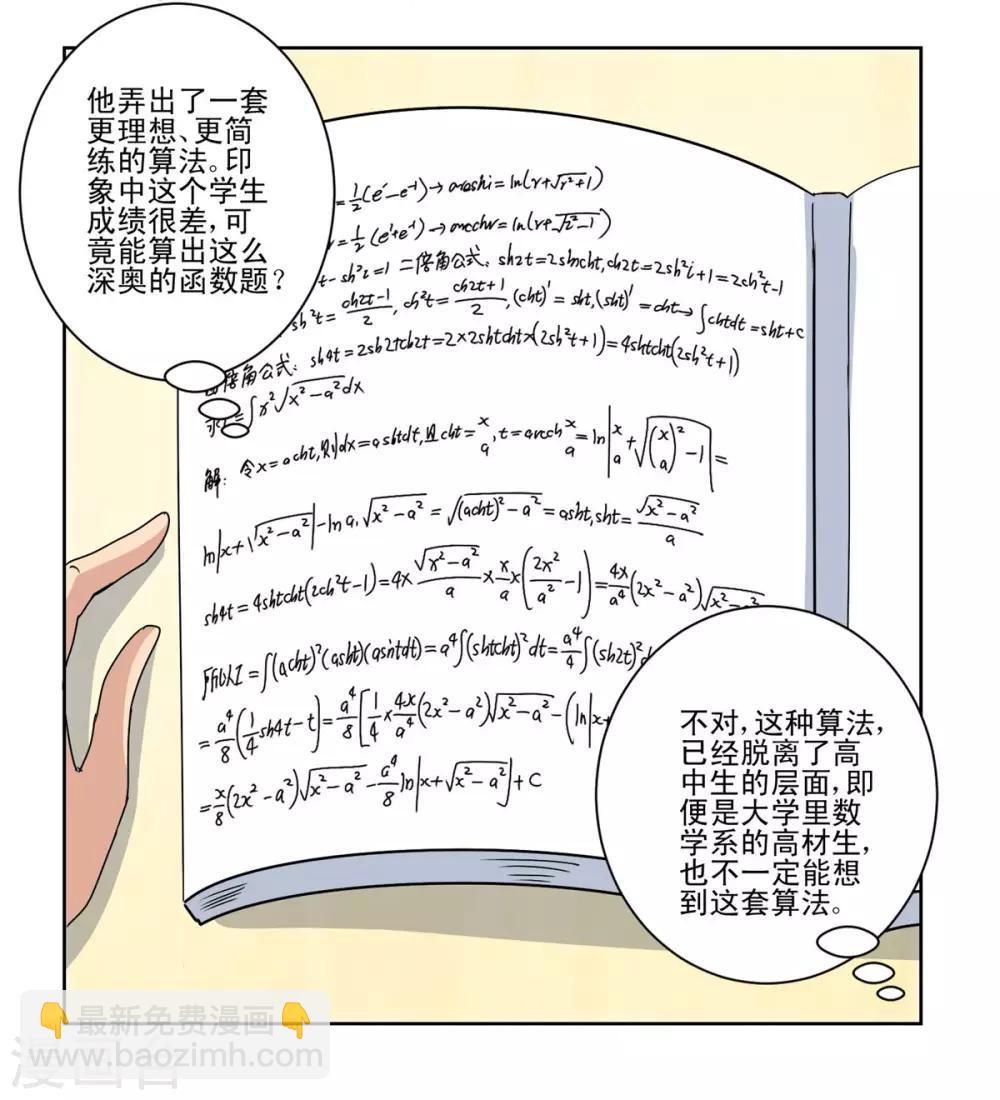 他弄出了一套
更理想、更简
练的算法。印
象中这个学生
成绩很差,可
竟能算出这么
深奥的函数题?
=½(eʳ-e⁻¹)→arashi=ln(r+√r²+1)
=½(eᵗ+e⁻¹)→arcchr=ln(r+√z²-1)
t-sh²i=1 二倍角公式: sh2t=2shtcht, ch2t=2sh²i+1=2ch²t-1
sh²t=(ch2t-1)/2, ch²t=(ch2t+1)/2, (cht)'=sht, (sht)'=cht→∫chtdt=sht+c
倍角公式: sh4t=2sh2tch2t=2×2shtcht×(2sh²t+1)=4shtcht(2sh²t+1)
求=∫x²√x²-a²dx
解: 令x=acht,则dx=ashtdt,且cht=x/a, t=arcch x/a=ln|x/a+√(x/a)²-1|=
ln|x+√x²-a²|-lna,√x²-a²=√(acht)²-a²=asht,sht=√x²-a²/a
sh4t=4shtcht(2ch²t-1)=4×√x²-a²/a×x/a×(2x²/a²-1)=4x/a⁴(2x²-a²)√x²-a²
所以I=∫(acht)²(asht)(asintdt)=a⁴∫(shtcht)²dt=a⁴/4∫(sh2t)²d
=a⁴/8(1/4sh4t-t)=a⁴/8[1/4×4x/a⁴(2x²-a²)√x²-a²-(ln|x+
=x/8(2x²-a²)√x²-a²-a⁴/8ln|x+√x²-a²|+C
不对,这种算法,
已经脱离了高
中生的层面,即
便是大学里数
学系的高材生,
也不一定能想
到这套算法。
最新免费漫画
www.baozimh.com